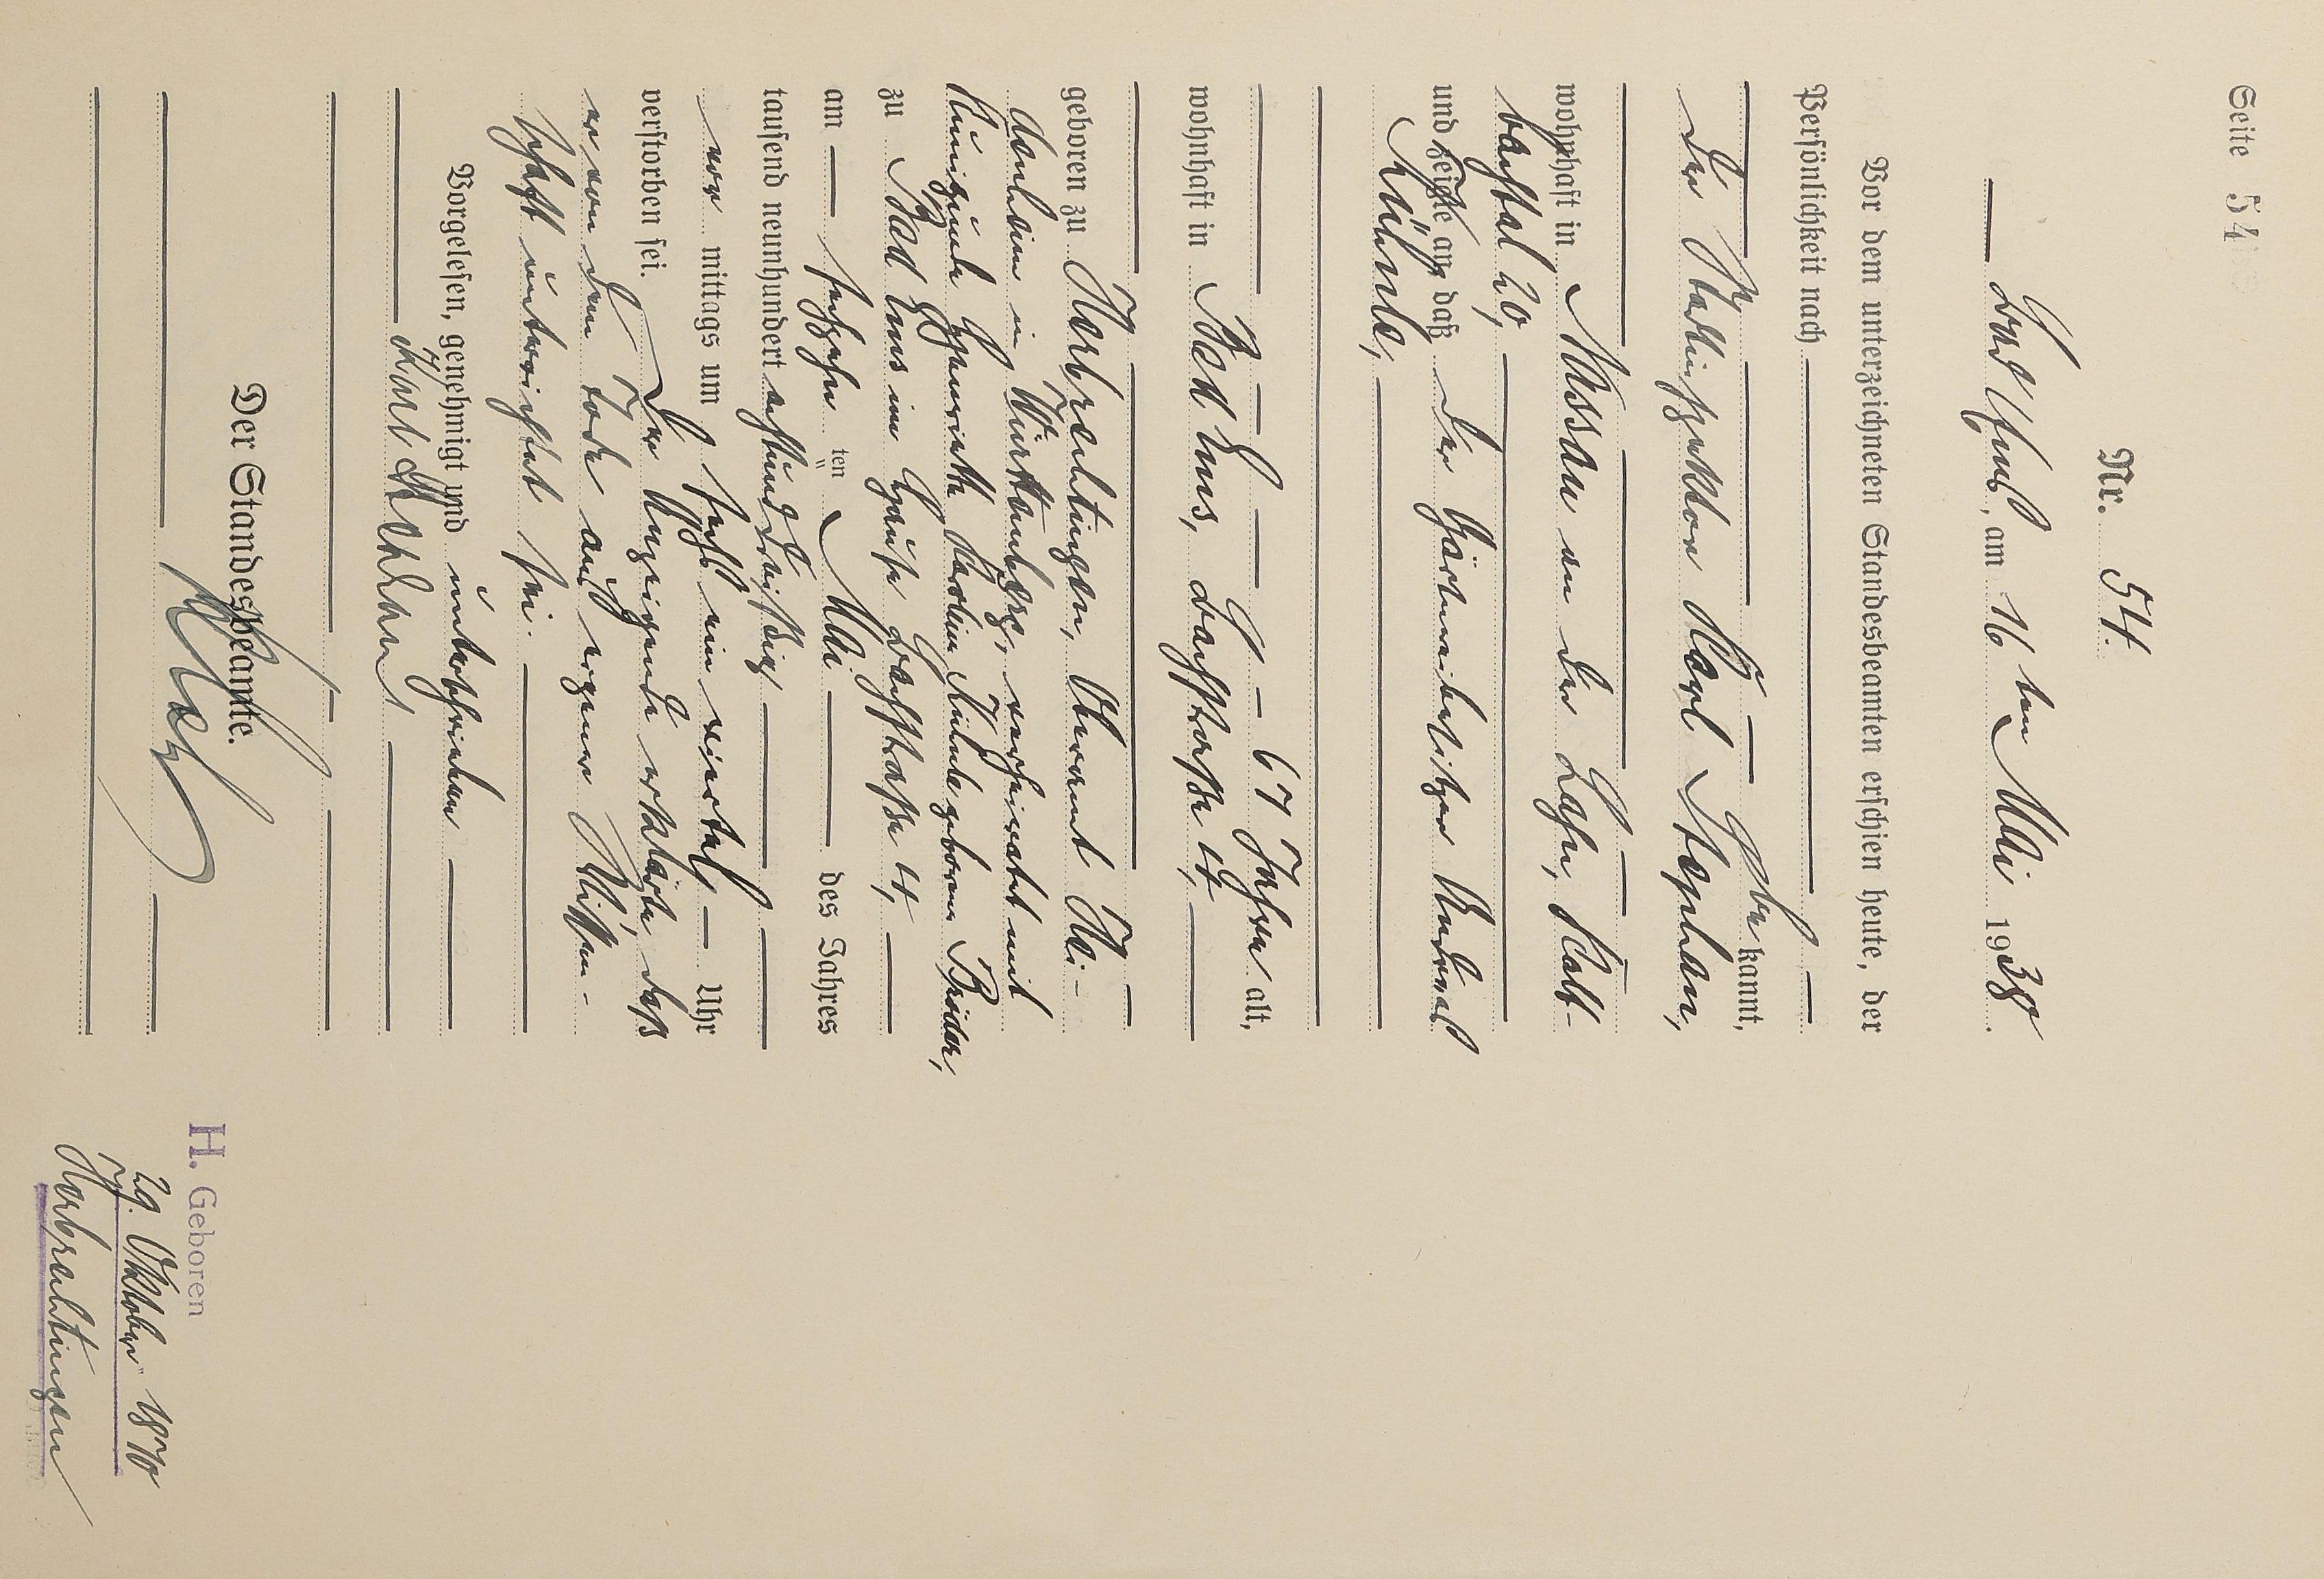 Seite 54
Nr. 54.
Bad Ems, am 16 ten Mai 1938.
Vor dem unterzeichneten Standesbeamten erschien heute, der
Persönlichkeit nach
kannt,
der Karl Stephan,
wohnhaft in Nassau an der Lahn, Kalt-
bachtal 20,
und zeigte an, daß der Gärtnereibesitzer Andreas
Kühnle,
67 Jahre alt,
wohnhaft in Bad Ems, Bachstraße 4,
geboren zu Herbrechtingen, Oberamt Hei-
denheim in Württemberg, verheiratet mit
Kunigunde Kühnle geborene
zu Bad Ems im Hause Bachstraße 4,
am sechzehnten Mai des Jahres
tausend neunhundert achtunddreißig
vor mittags um sechs ein viertel Uhr
verstorben sei. Der Anzeigende erklärte, daß
er von dem Tode aus eigener Wissen-
schaft unterrichtet sei.
Vorgelesen, genehmigt und unterschrieben
Karl Stephan
Der Standesbeamte.
H. Geboren
29. Oktober 1870
Herbrechtingen